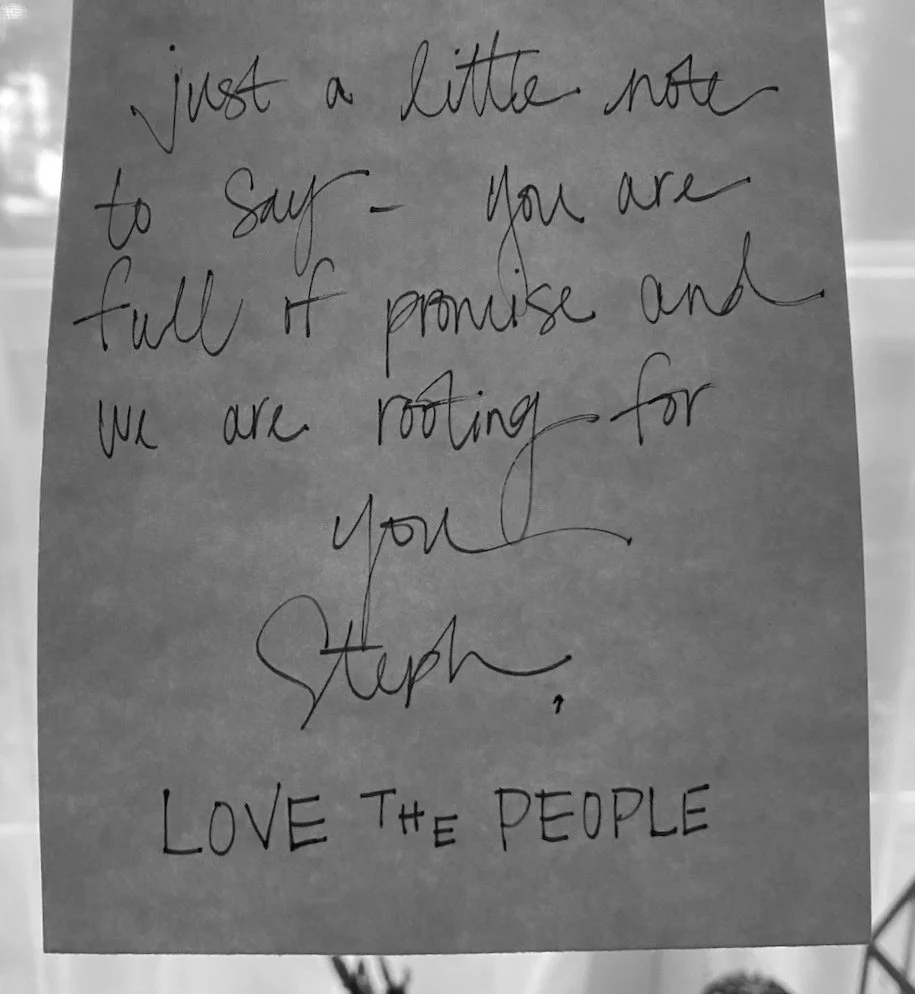 just a little note
to say - you are
full of promise and
we are rooting for
you
Steph,
LOVE THE PEOPLE